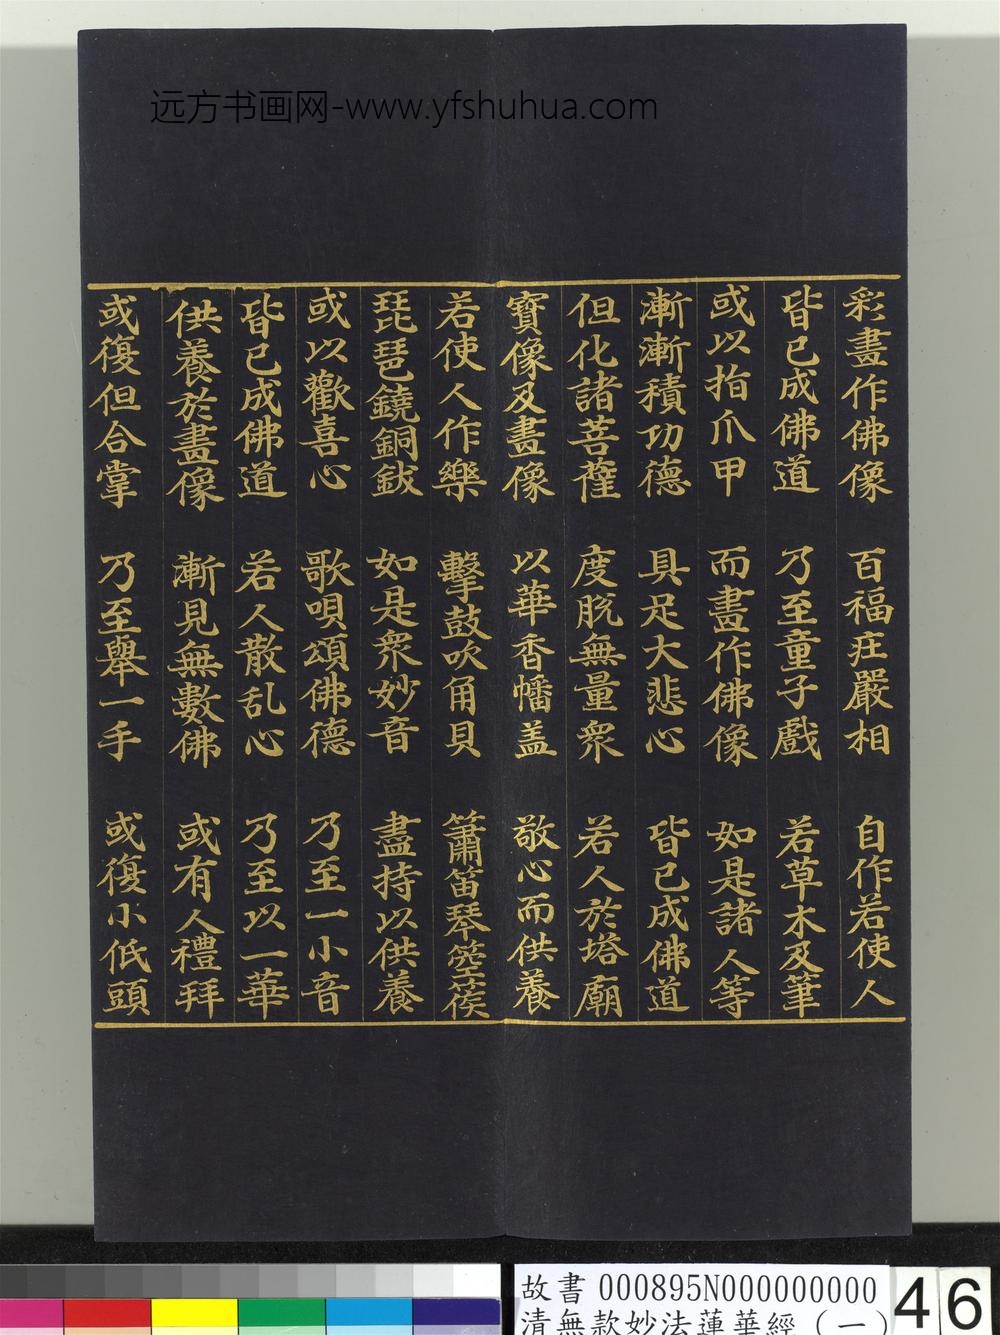 远方书画网-www.yfshuhua.com
彩畫作佛像 百福疘嚴相 自作若使人
皆已成佛道 乃至童子戲 若草木及筆
或以指爪甲 而畫作佛像 如是諸人等
漸漸積功德 具足大悲心 皆已成佛道
但化諸菩薩 度脫無量衆 若人於塔廟
寶像及畫像 以華香幡盖 敬心而供養
若使人作樂 擊鼓吹角貝 簫笛琴箜篌
琵琶鐃銅鈸 如是衆妙音 盡持以供養
或以歡喜心 歌唄頌佛德 乃至一小音
皆已成佛道 若人散乱心 乃至以一華
供養於畫像 漸見無數佛 或有人禮拜
或復但合掌 乃至舉一手 或復小低頭
故書 000895N000000000
清無款妙法蓮華經（一）
46